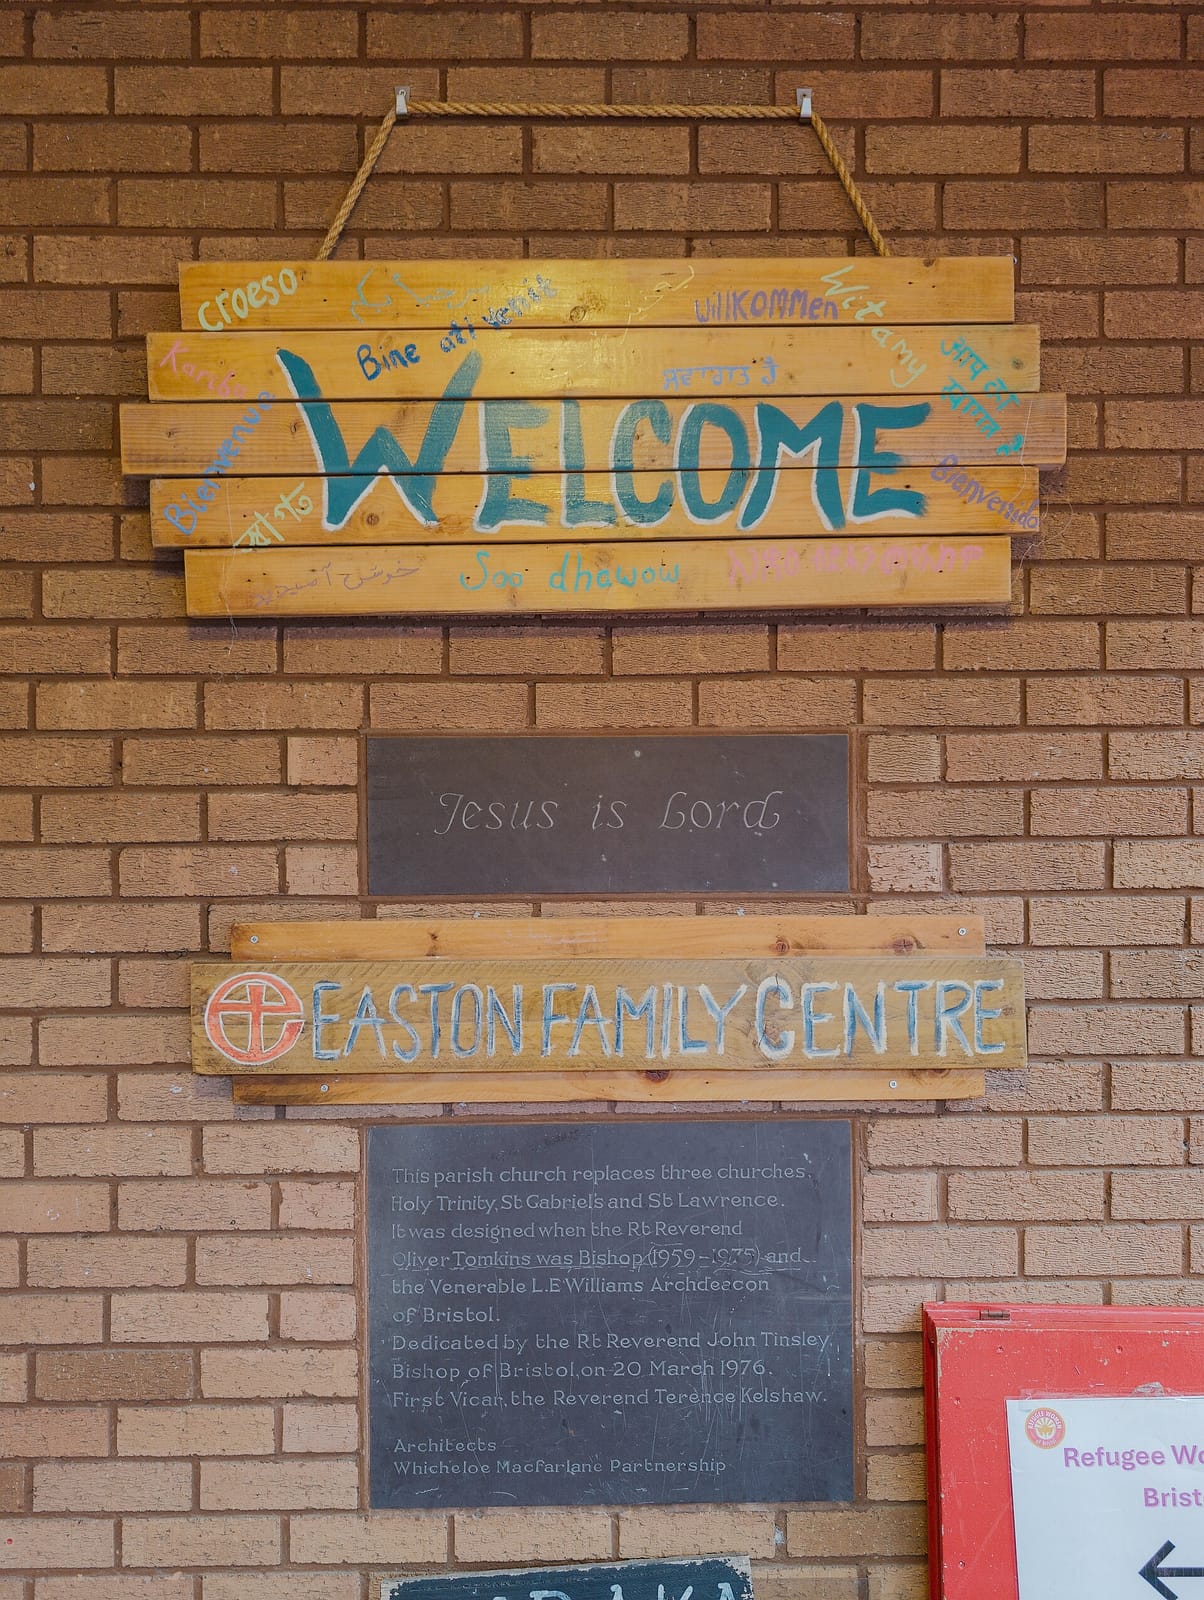 croeso
مرحبا بكم
WillKOMMen
Witamy
Bine ati venit
Karibu
ਸਵਾਗਤ ਹੈ
आप का
स्वागत है
Bienvenue
WELCOME
Bienvenido
স্বাগত
خوش آمدید
Soo dhawow
Jesus is Lord
EASTON FAMILY CENTRE
This parish church replaces three churches,
Holy Trinity, St Gabriel's and St Lawrence.
It was designed when the Rt Reverend
Oliver Tomkins was Bishop (1959-1975) and
the Venerable L.E Williams Archdeacon
of Bristol.
Dedicated by the Rt Reverend John Tinsley,
Bishop of Bristol, on 20 March 1976.
First Vicar, the Reverend Terence Kelshaw.
Architects
Whicheloe Macfarlane Partnership
REFUGEE WOMEN
of Bristol
Refugee Wo
Brist